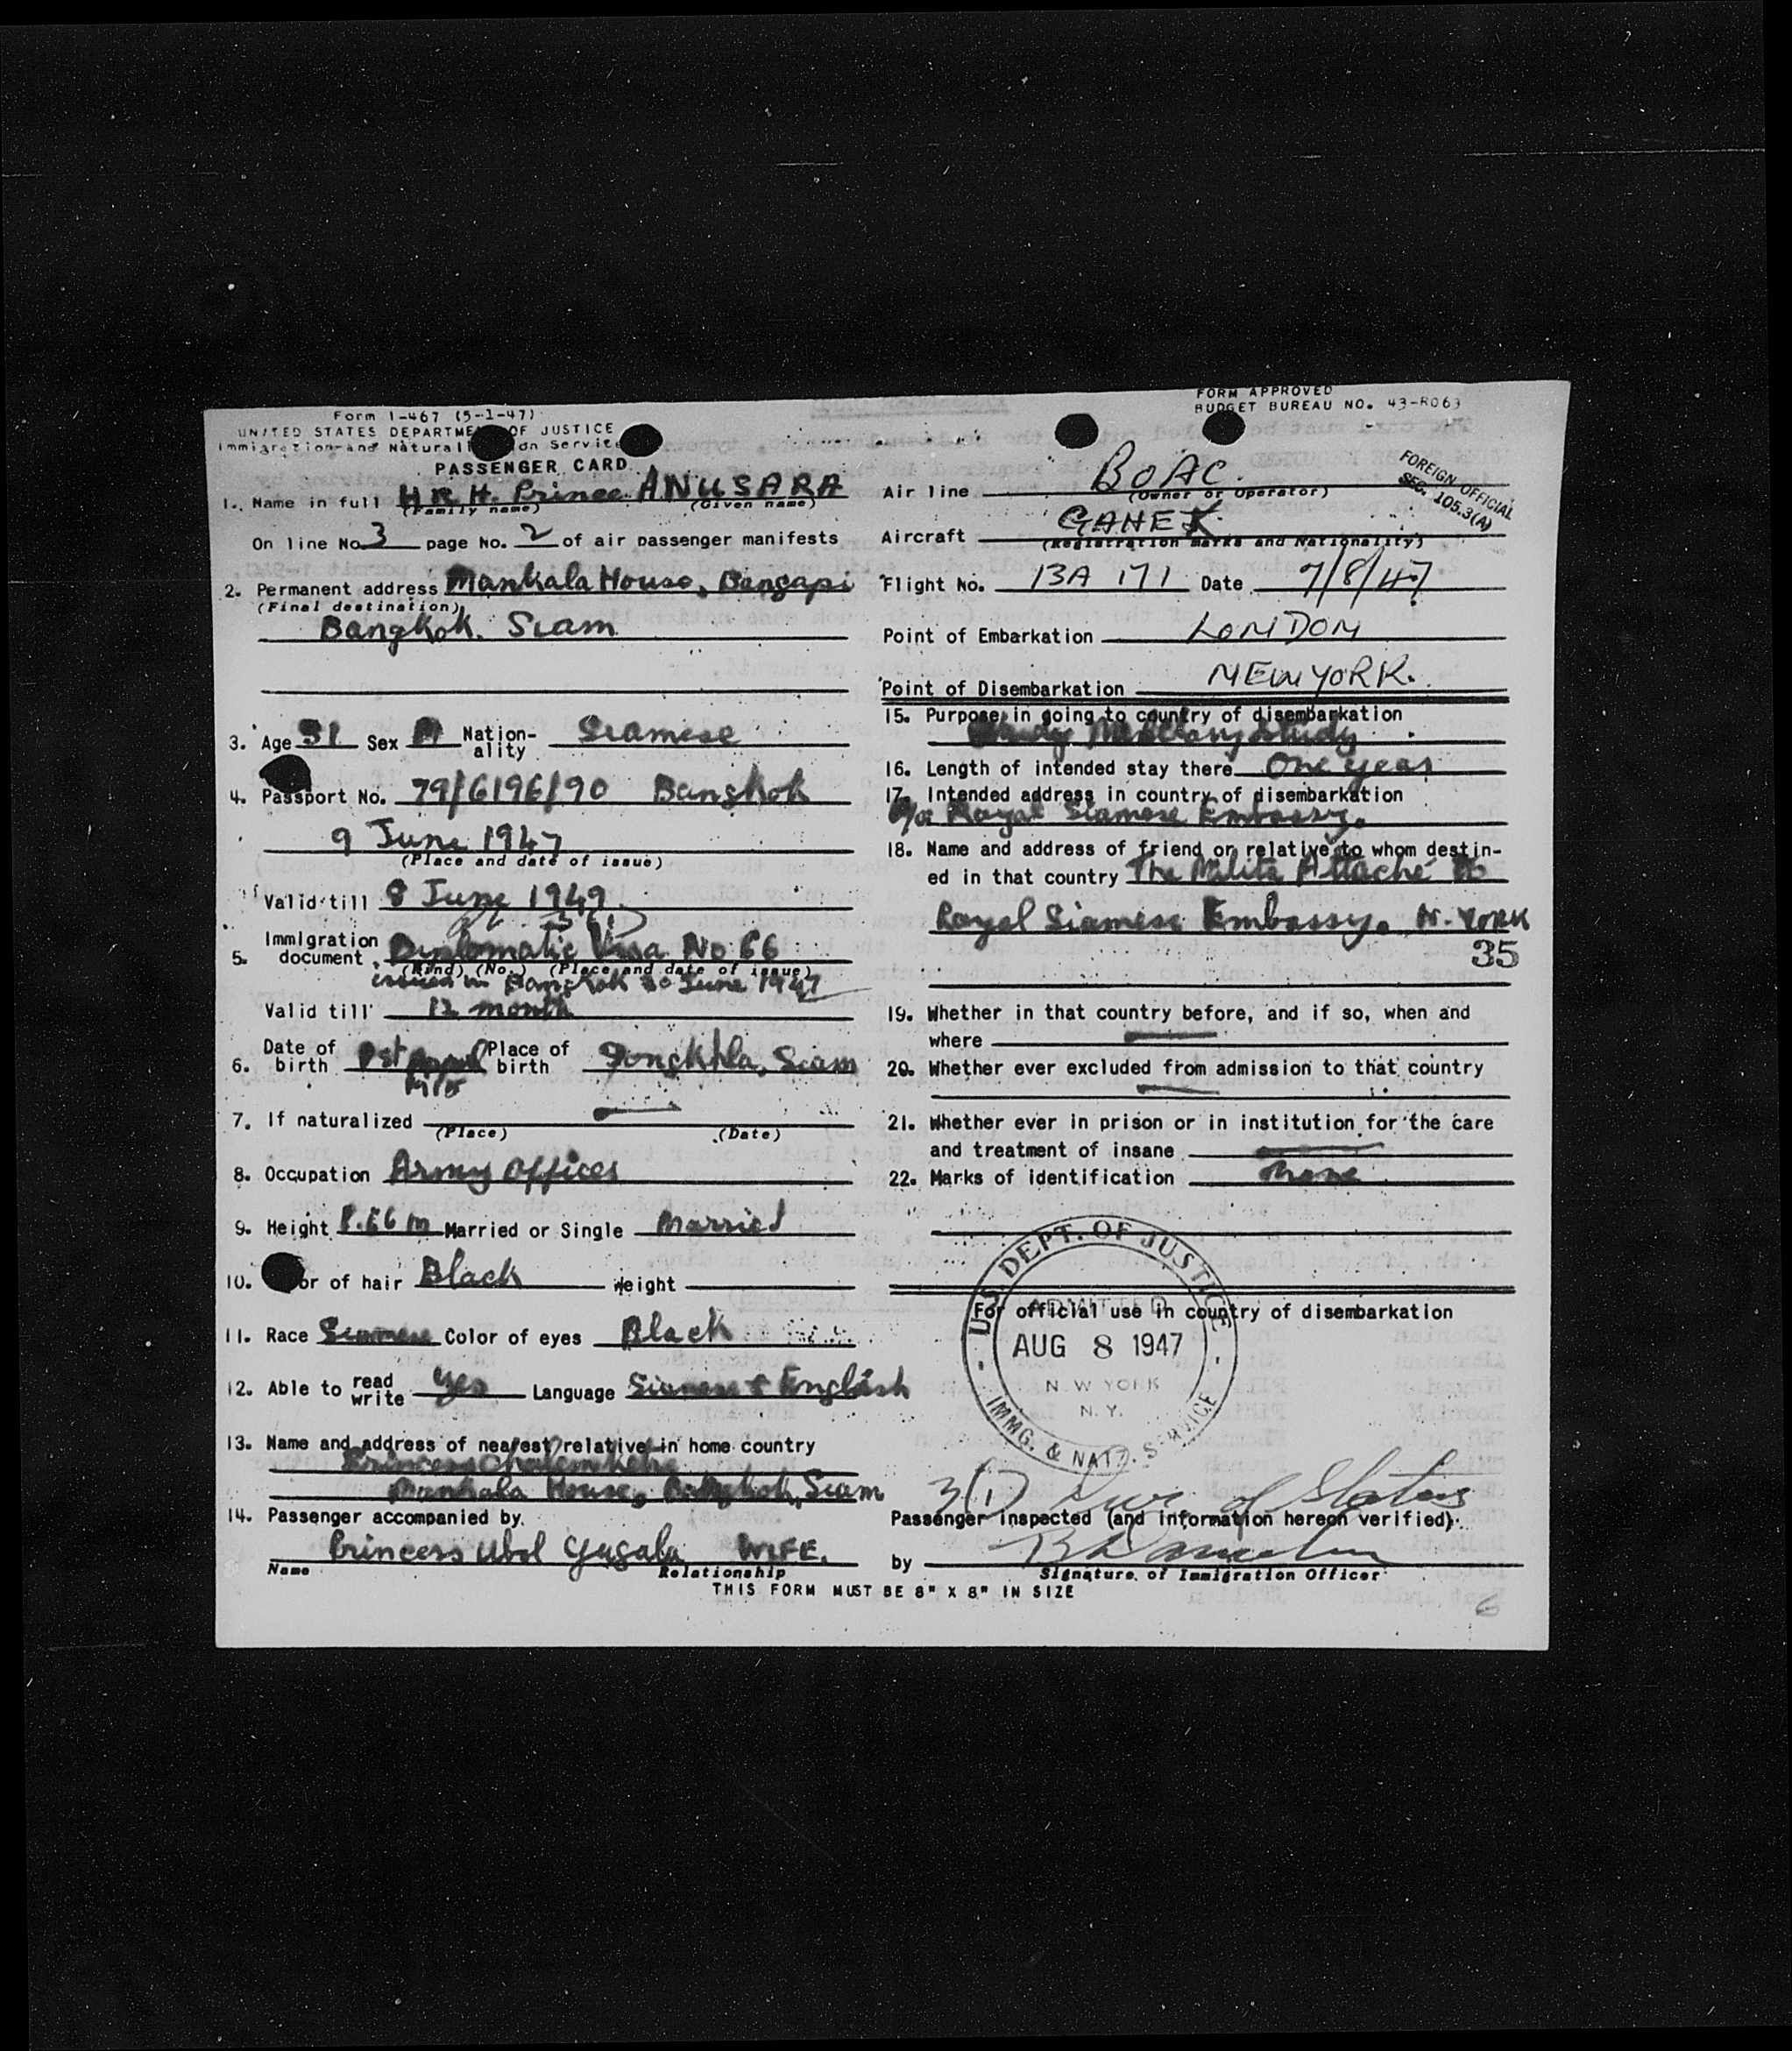 Form I-467 (5-1-47)
UNITED STATES DEPARTMENT OF JUSTICE
Immigration and Naturalization Service
PASSENGER CARD
FORM APPROVED
BUDGET BUREAU NO. 43-R063
FOREIGN OFFICIAL
SEC. 105.3(A)
1. Name in full H.R.H. Prince ANUSARA
(Family name) (Given name)
On line No. 3 page No. 2 of air passenger manifests
2. Permanent address Mankala House, Bangapi
(Final destination)
Bangkok. Siam
3. Age 31 Sex M Nation-ality Siamese
4. Passport No. 79/6196/90 Bangkok
9 June 1947
(Place and date of issue)
Valid till 8 June 1949.
3(1)
5. Immigration document Diplomatic Visa No 66
(Kind) (No.) (Place and date of issue)
issued in Bangkok June 1947
Valid till 12 month
6. Date of birth 1st April 1915 Place of birth Songkhla, Siam
7. If naturalized
(Place) (Date)
8. Occupation Army Officer
9. Height 1.66 m Married or Single Married
10. Color of hair Black Weight
11. Race Siamese Color of eyes Black
12. Able to read write Yes Language Siamese & English
13. Name and address of nearest relative in home country
Princess
Mankala House, Bangkok, Siam
14. Passenger accompanied by
Princess Ubol Yugala WIFE.
Name Relationship
Air line BOAC.
(Owner or Operator)
Aircraft GAHEK
(Registration marks and Nationality)
Flight No. BA 171 Date 7/8/47
Point of Embarkation LONDON
Point of Disembarkation NEW YORK.
15. Purpose in going to country of disembarkation
Military study
16. Length of intended stay there One year
17. Intended address in country of disembarkation
c/o Royal Siamese Embassy.
18. Name and address of friend or relative to whom destin-
ed in that country The Milita Attaché
Royal Siamese Embassy. N. YORK
35
19. Whether in that country before, and if so, when and
where
20. Whether ever excluded from admission to that country
21. Whether ever in prison or in institution for the care
and treatment of insane
22. Marks of identification none
For official use in country of disembarkation
U.S. DEPT. OF JUSTICE
ADMITTED
AUG 8 1947
NEW YORK
N.Y.
IMMG. & NATZ. SERVICE
3(1) of Status
Passenger inspected (and information hereon verified).
by
Signature of Immigration Officer
THIS FORM MUST BE 8" X 8" IN SIZE
6